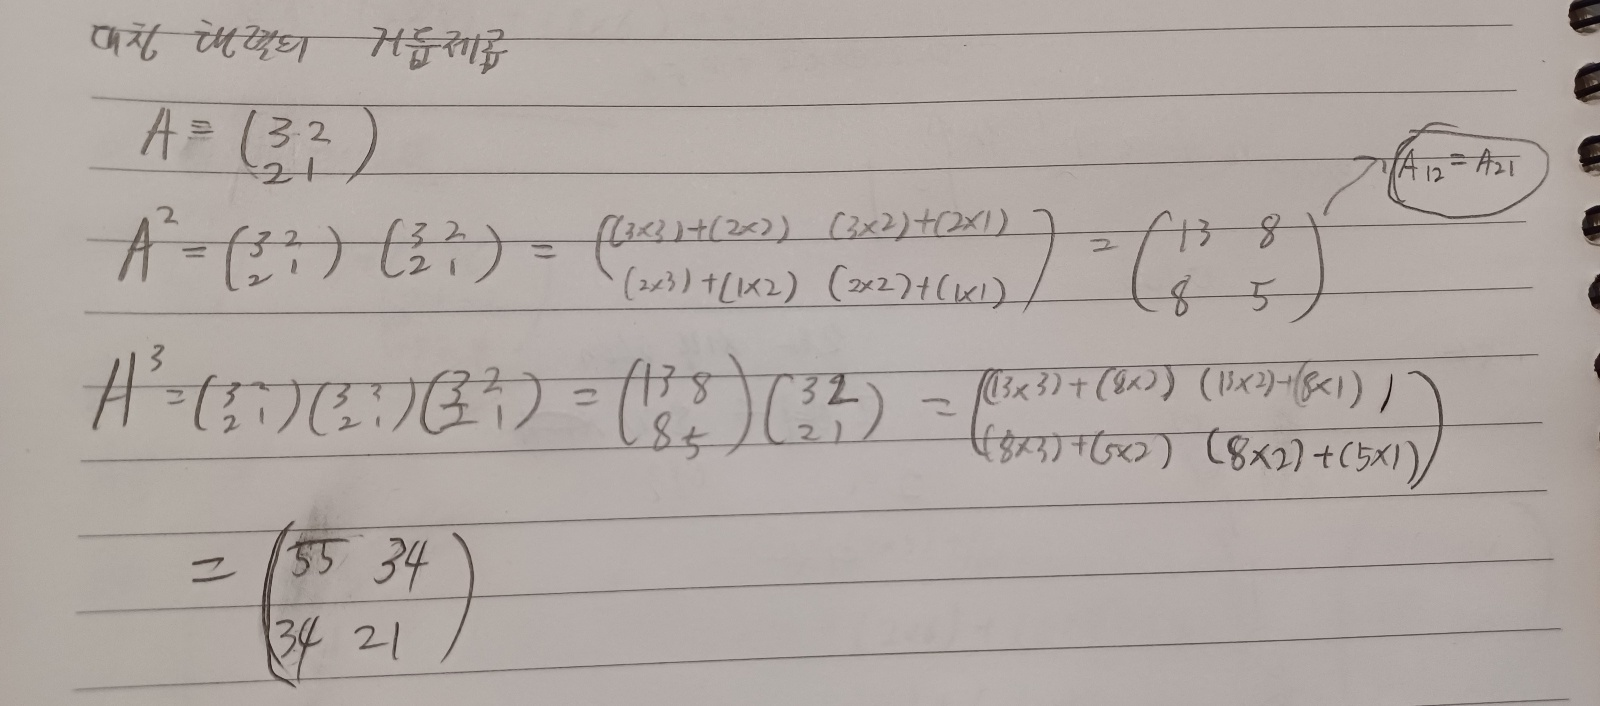 대칭 행렬의 거듭제곱
A = (3 2
2 1)
A12 = A21
A² = (3 2
2 1) (3 2
2 1) = ((3x3)+(2x2) (3x2)+(2x1)
(2x3)+(1x2) (2x2)+(1x1)) = (13 8
8 5)
A³ = (3 2
2 1)(3 2
2 1)(3 2
2 1) = (13 8
8 5)(3 2
2 1) = ((13x3)+(8x2) (13x2)+(8x1)
(8x3)+(5x2) (8x2)+(5x1))
= (55 34
34 21)